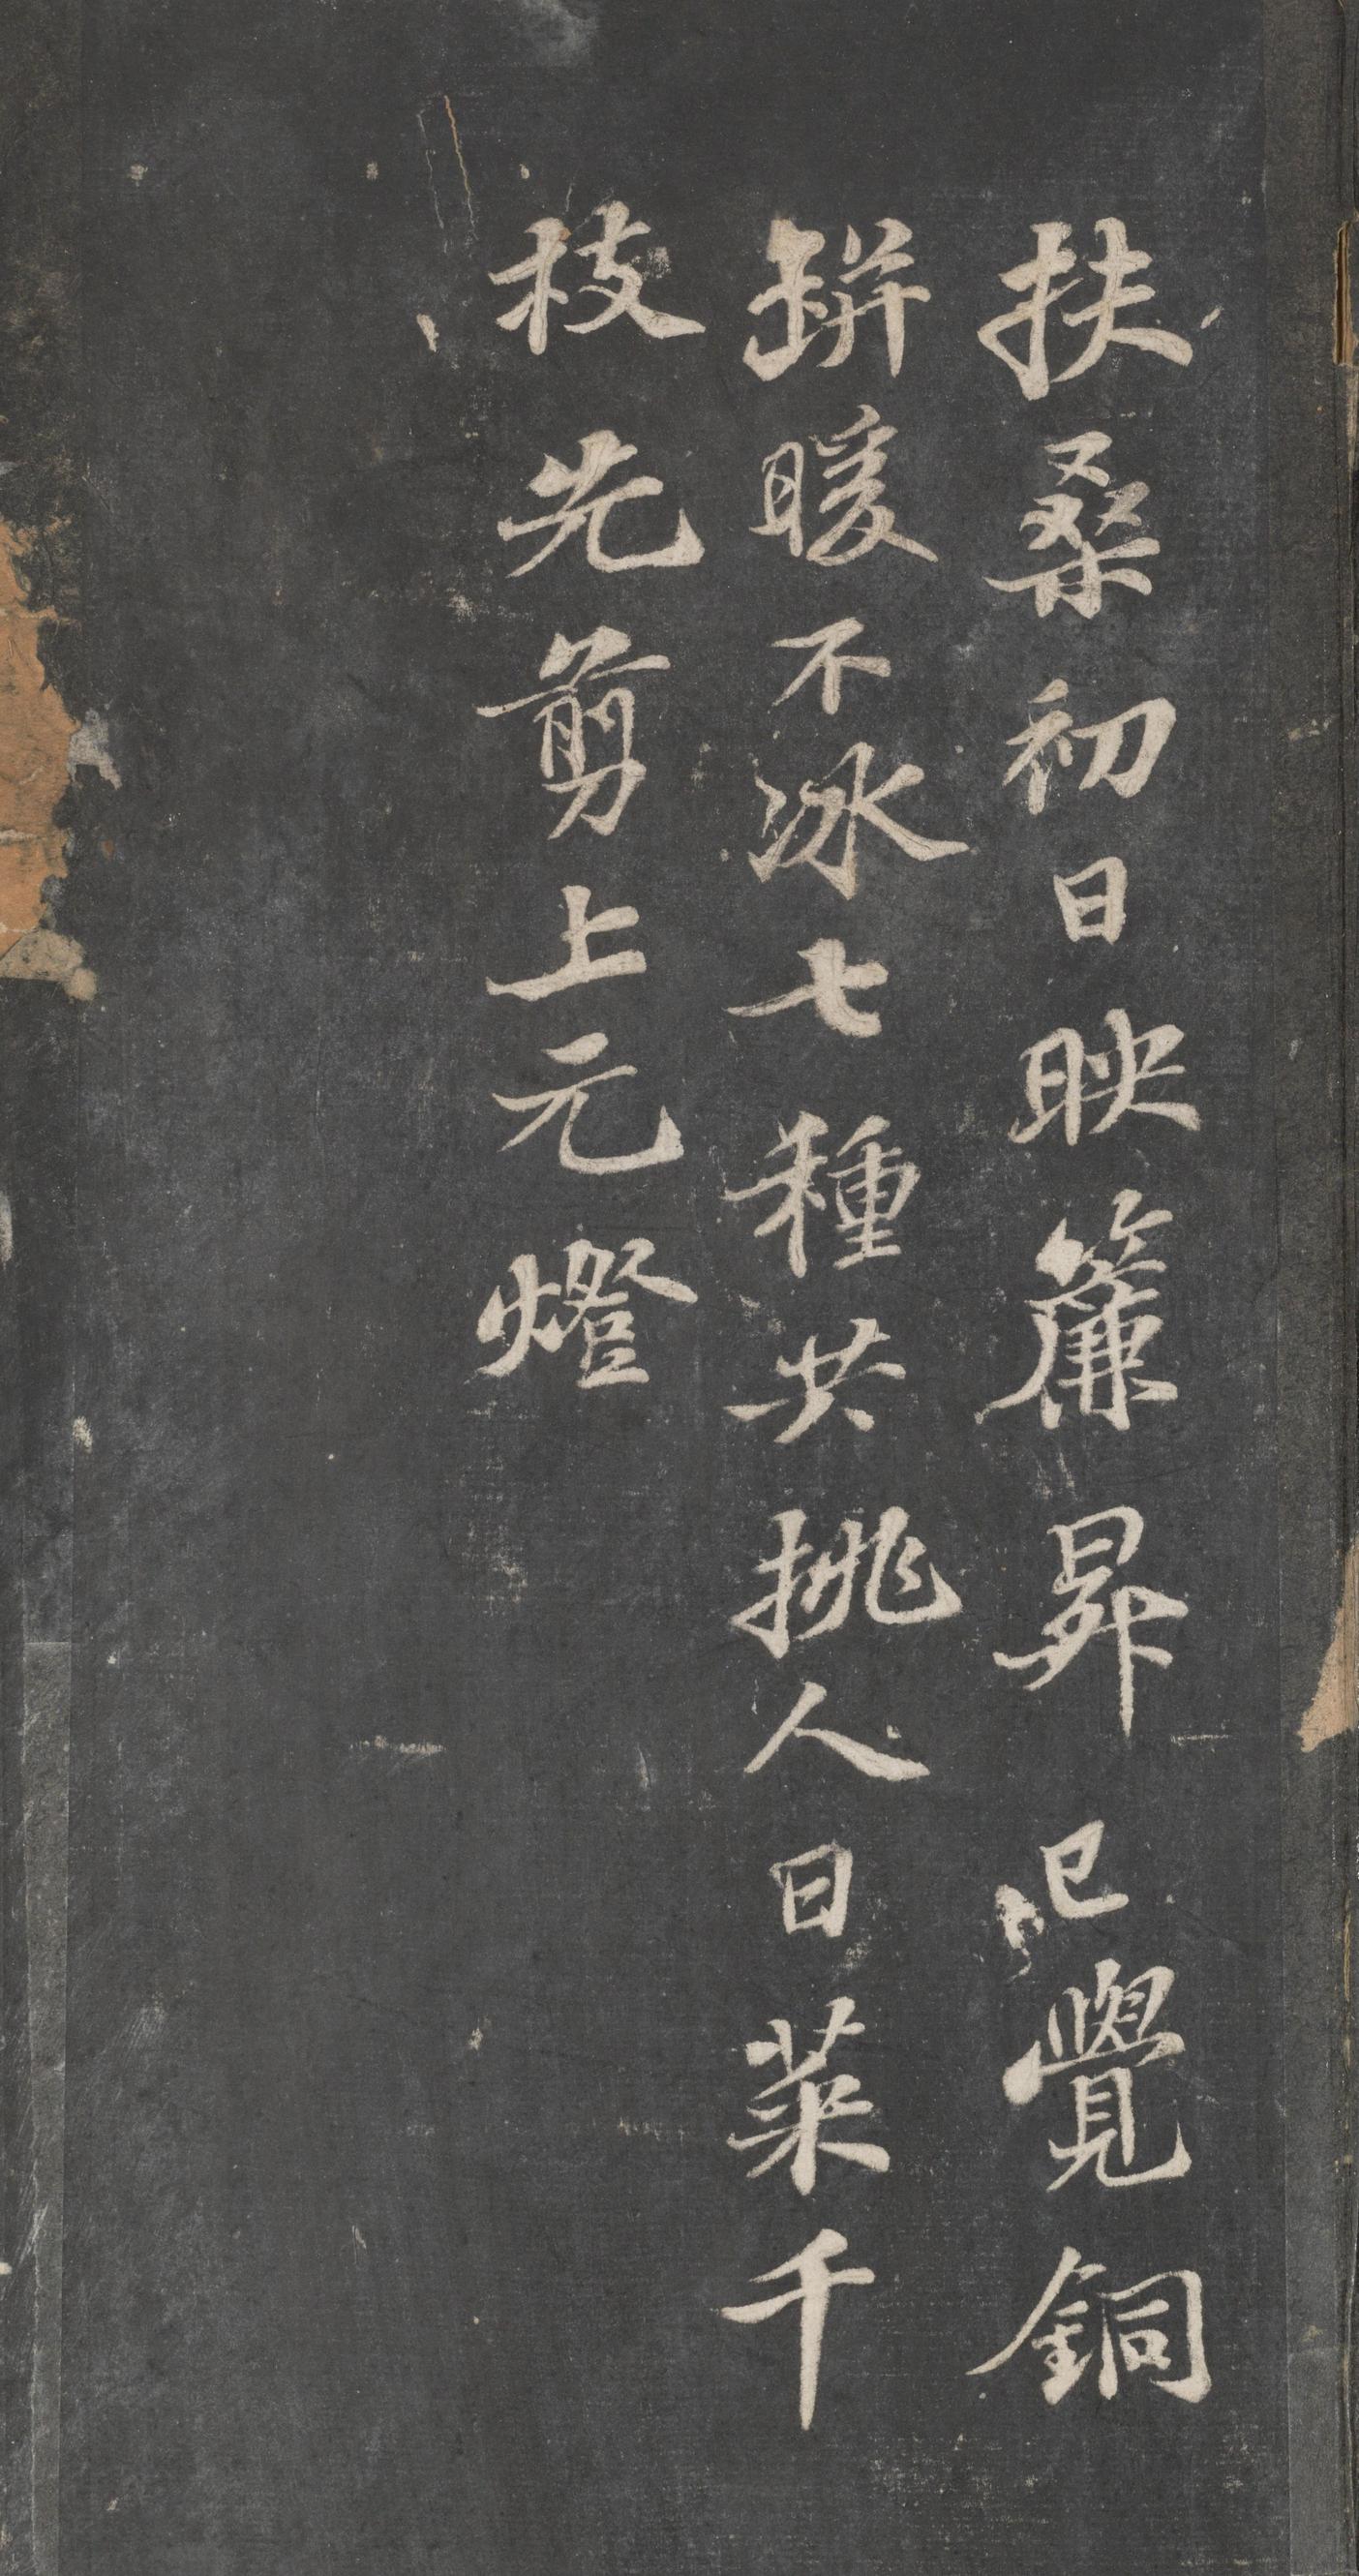 扶桑初日映簾昇已覺銅
缾暖不冰七種共挑人日菜千
枝先剪上元燈